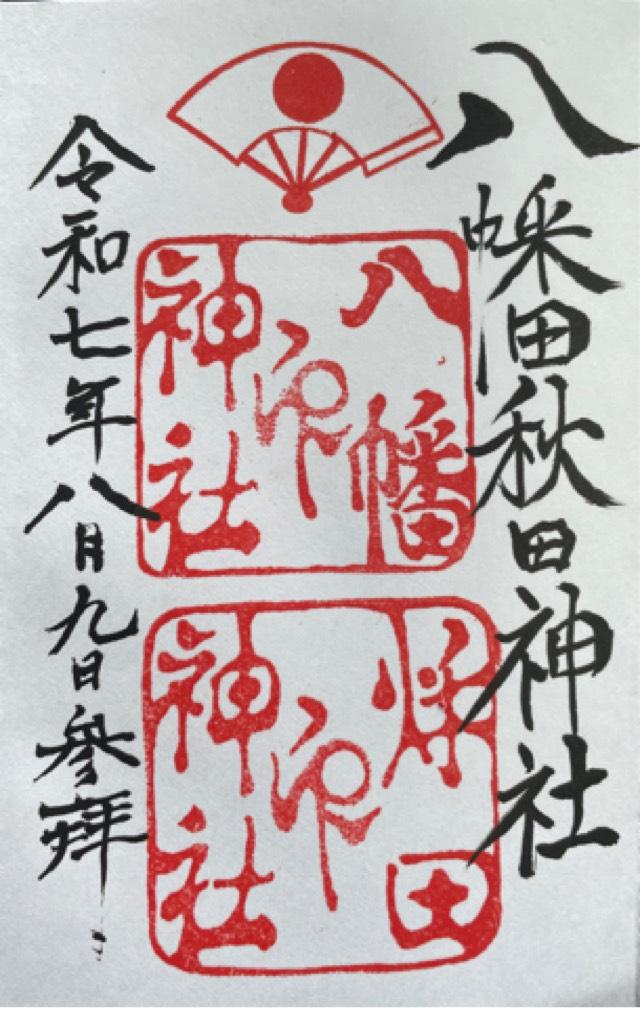 八幡秋田神社
八幡
印
神社
秋田
印
神社
令和七年八月九日参拝